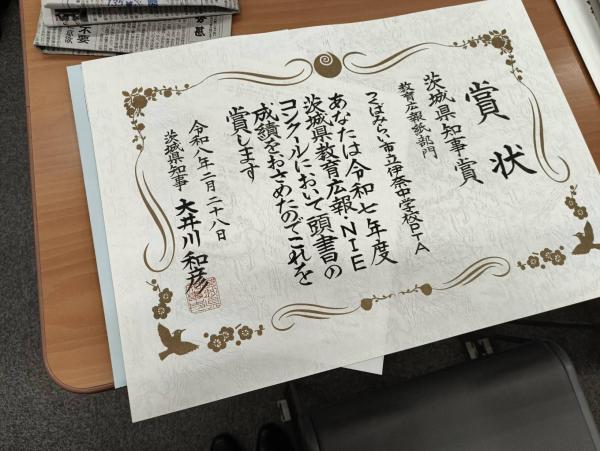 賞状
茨城県知事賞
教育広報紙部門
つくばみらい市立伊奈中学校PTA
あなたは令和七年度
茨城県教育広報・NIE
コンクールにおいて頭書の
成績をおさめたのでこれを
賞します
令和八年二月二十八日
茨城県知事 大井川和彦